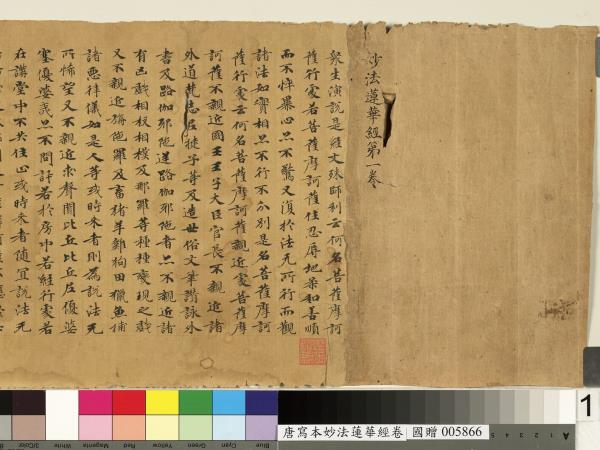 妙法蓮華經第一卷
衆生演說是經文殊師利云何名菩薩摩訶
薩行處若菩薩摩訶薩住忍辱地柔和善順
而不悴暴心亦不驚又復於法无所行而觀
諸法如實相亦不行不分別是名菩薩摩訶
薩行處云何名菩薩摩訶薩親近處菩薩摩
訶薩不親近國王王子大臣官長不親近諸
外道梵志尼揵子等及造世俗文筆讚詠外
書及路伽耶陁逆路伽耶陁者亦不親近諸
有凶戲相杈相撲及那羅等種種變現之戲
又不親近旃陁羅及畜猪羊雞狗田獵魚捕
諸惡律儀如是人等或時來者則為說法无
所悕望又不親近求聲聞比丘比丘尼優婆
塞優婆夷亦不問訊若於房中若經行處若
在講堂中不共住止或時來者隨宜說法无
唐寫本妙法蓮華經卷 國贈 005866
Blue
Cyan
Green
Yellow
Red
Magenta
White
3/Color
A
1